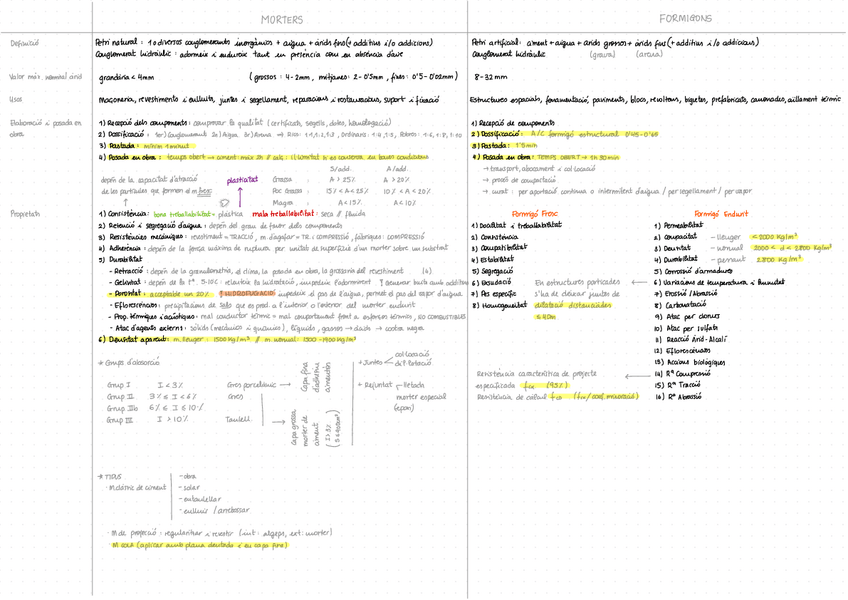 MORTERS
FORMIGONS
Definició
Petri natural = 1 o diversos conglomerants inorgànics + aigua + àrids fins (+ additius i/o addicions)
Conglomerat hidràulic: adormeix i endureix tant en presència com en absència d'aire
Petri artificial: ciment + aigua + àrids grossos + àrids fins (+ additius i/o addicions)
Conglomerat hidràulic (grava) (arena)
Valor màx. nominal àrid
grandària < 4mm (grossos: 4-2mm, mitjanes: 2-0'5mm, fines: 0'5-0'02mm)
8-32mm
Usos
Maçoneria, revestiments i enlluits, juntes i segellament, reparacions i restauracions, suport i fixació
Estructures espacials, fonamentació, paviments, blocs, revoltons, biguetes, prefabricats, canonades, aïllament tèrmic
Elaboració i posada en obra
1) Recepció dels components: comprovar la qualitat (certificats, segells, dotes, homologació)
2) Dossificació: 1er) Conglomerant 2n) Aigua 3r) Arena → Rics: 1:1, 1:2, 1:3, Ordinaris: 1:4, 1:5, Pobres: 1:6, 1:8, 1:10
3) Pastada: mínim 1 minut
4) Posada en obra: temps obert → ciment: màx 2h // calç: il·limitat si es conserva en bones condicions
1) Recepció de components
2) Dossificació: A/C formigó estructural 0'45-0'65
3) Pastada: 1'5 min
4) Posada en obra: TEMPS OBERT → 1h 30 min
→ transport, abocament i col·locació
→ procés de compactació
→ curat: per aportació continua o intermitent d'aigua / per segellament / per vapor
depèn de la capacitat d'atracció
de les partícules que formen el m. fresc
plasticitat
S/add. A/add.
Grassa : A > 25% A > 20%
Poc Grassa : 15% < A < 25% 10% < A < 20%
Magra : A < 15% A < 10%
Propietats
1) Consistència: bona treballabilitat → plàstica mala treballabilitat: seca // fluida
2) Retenció i segregació d'aigua: depèn del grau de finor dels components
3) Resistències mecàniques: revestiment → TRACCIÓ, m. d'agafar → TR. i COMPRESSIÓ, fàbriques: COMPRESSIÓ
4) Adherència: depèn de la força màxima de ruptura per unitat de superfície d'un morter sobre un substrat
5) Durabilitat
- Retracció: depèn de la granulometria, el clima, la posada en obra, la grossària del revestiment
- Gelivitat: depèn de la tª. 5-10ºC: relenteix la hidratació, impedeix l'adormiment
- Porositat: acceptable un 20% ! HIDROFUGACIÓ impedeix el pas de l'aigua, permet el pas del vapor d'aigua
- Eflorescències: precipitacions de sals que es prod. a l'interior o l'exterior del morter endurit
- Prop. tèrmiques i acústiques: mal conductor tèrmic = mal comportament front a esforços tèrmics, NO COMBUSTIBLES
- Atac d'agents externs: sòlids (mecànics i químics), líquids, gasos → àcids → crosta negra
6) Densitat aparent: m. lleuger: 1300 kg/m³ // m. normal: 1300-1900 kg/m³
Formigó Fresc
1) Docilitat i treballabilitat
2) Consistència
3) Compatibilitat
4) Estabilitat
5) Segregació
6) Exsudació
7) Pes específic
8) Homogeneïtat
En estructures porticades
s'ha de col·locar juntes de
dilatació distanciades
≤ 40m
Formigó Endurit
1) Permeabilitat
2) Compacitat - lleuger < 2000 kg/m³
3) Densitat - normal 2000 < d < 2800 kg/m³
4) Durabilitat - pesant 2800 kg/m³
5) Corrosió d'armadures
6) Variacions de temperatura i humitat
7) Erosió / Abrasió
8) Carbonatació
9) Atac per clorurs
10) Atac per sulfats
11) Reacció Àrid-Àlcali
12) Eflorescències
13) Accions biològiques
14) Rª Compressió
15) Rª Tracció
16) Rª Abrasió
Resistència característica de projecte
especificada fck (95%)
Resistència de càlcul fcd (fck/coef. minoració)
→ Grups d'absorció
Grup I I < 3% Gres porcelànic →
Grup II 3% ≤ I < 6% Gres
Grup IIb 6% ≤ I ≤ 10%
Grup III I > 10% Taulell →
Capa fina
d'adhesiu
cimentós
Capa grossa
morter de
ciment
+ Juntes
col·locació
dilatació
+ Rejuntat
lletada
morter especial
(epoxi)
→ TIPUS
· M. clàssic de ciment
- obra
- solar
- entaulellar
- enlluir / arrebossar
· M. de projecció: regularitzar i revestir (int: algeps, ext: morter)
· M. cola (aplicar amb plana dentada i en capa fina)